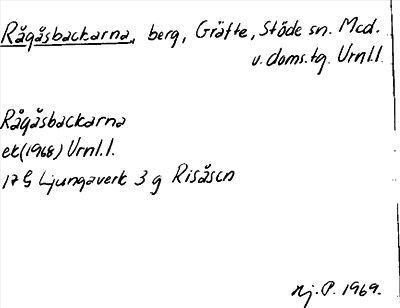 Rågåsbackarna, berg, Gräfte, Stöde sn. Mcd.
v. doms.tg. Vrnl.l.
Rågåsbackarna
ek(1968) Vrnl.l.
17 G Ljungaverk 3 g Risåsen
Nj. P. 1969.